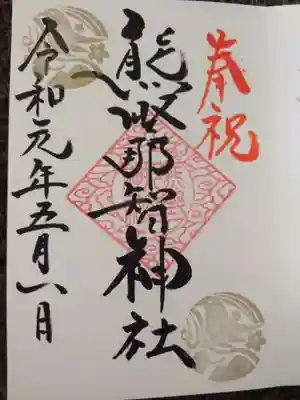 奉祝
熊野那智神社
令和元年五月八日